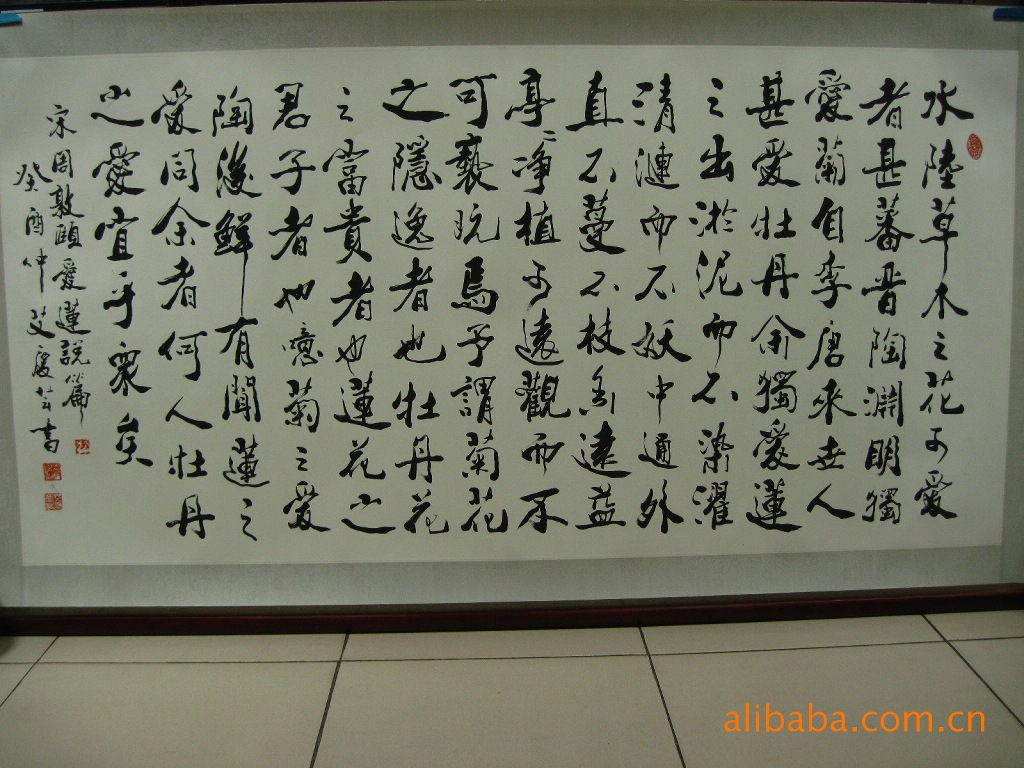 水陸草木之花可愛
者甚蕃晉陶淵明獨
愛菊自李唐來世人
甚愛牡丹余獨愛蓮
之出淤泥而不染濯
清漣而不妖中通外
直不蔓不枝香遠益
亭〻淨植可遠觀而不
可褻玩焉予謂菊花
之隱逸者也牡丹花
之富貴者也蓮花之
君子者也噫菊之愛
陶後鮮有聞蓮之
愛同余者何人牡丹
之愛宜乎眾矣
宋周敦頤愛蓮說篇
癸酉仲芸書
alibaba.com.cn